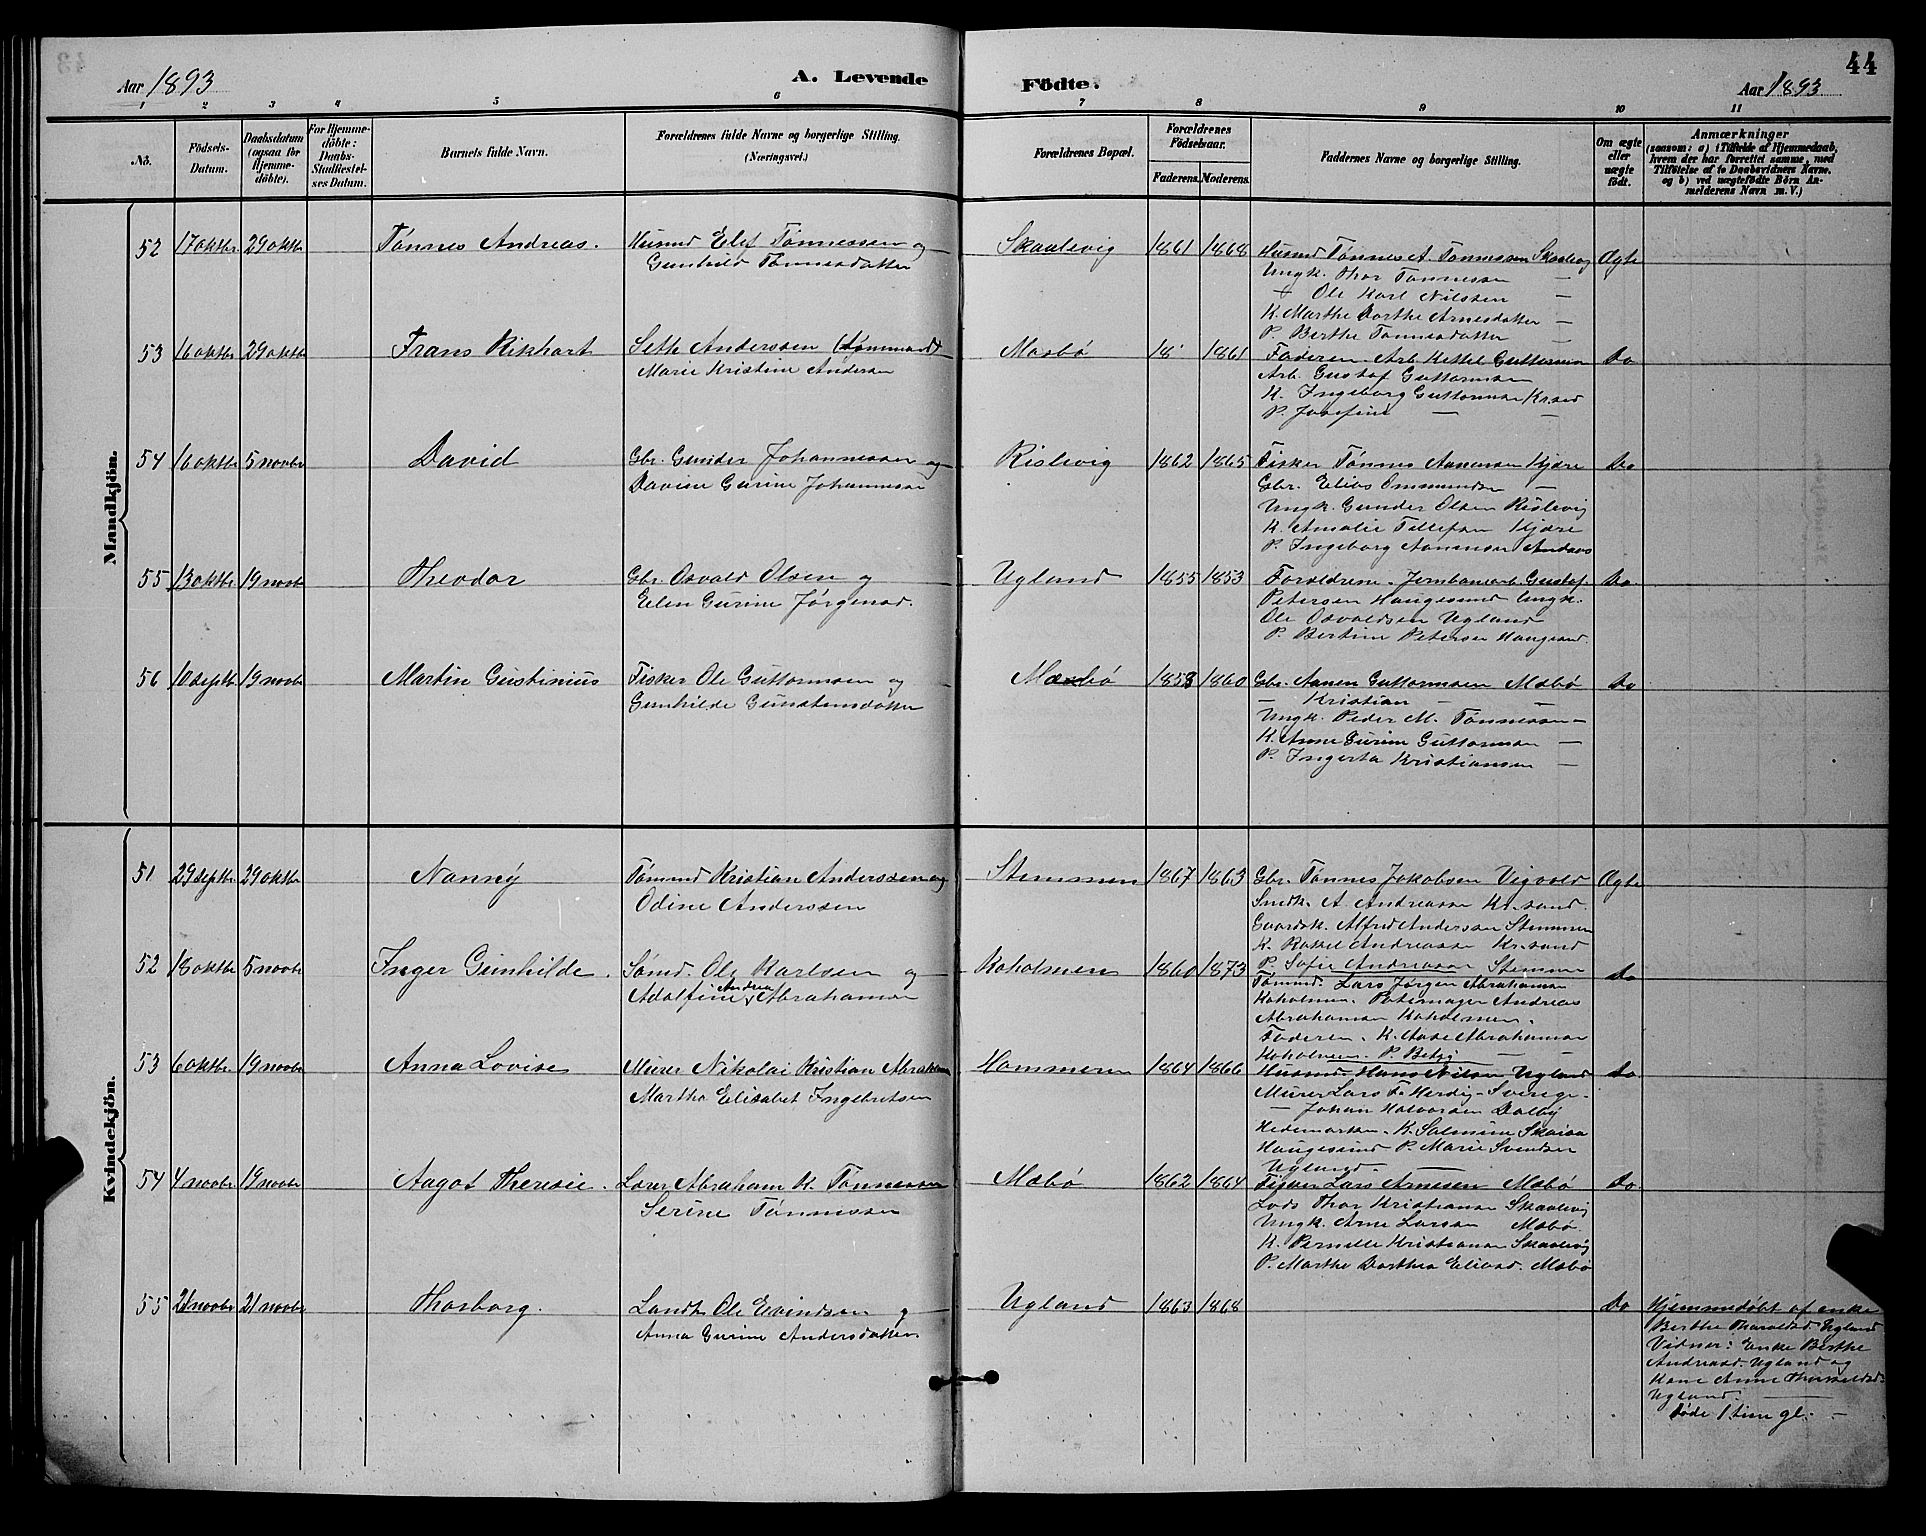 44
Aar 1893
A. Levende
Födte.
Aar 1893
1 2 3 4 5 6 7 8 9 10 11
No.
Födsels-
Datum.
Daabsdatum
(ogsaa for
Hjemme-
döbte).
For Hjemme-
döbte:
Daabs-
Stadfæstel-
ses Datum.
Barnets fulde Navn.
Forældrenes fulde Navne og borgerlige Stilling.
(Næringsvei.)
Forældrenes Bopæl.
Forældrenes
Födselsaar.
Faderens. Moderens.
Faddernes Navne og borgerlige Stilling.
Om ægte
eller
uægte
födt.
Anmærkninger
(saasom: a) i Tilfælde af Hjemmedaab,
hvem der har forrettet samme, med
Tilföielse af to Daabsvidners Navne.
og b) ved uægtefödte Börn An-
melderens Navn m. V.)
Mandkjön.
52 17 oktbr. 29 oktbr Tønnes Andreas. Husmd Elef Tønnessen og
Gunhild Tønnesdatter
Skaalevig 1861 1868 Husmd Tønnes A. Tønnessen Skaalevig Ægte
Ungk. Thor Tønnessen —
— Ole Karl Nilssen —
K. Marthe Dorthe Arnesdatter —
P. Berthe Tønnesdatter —
53 16 oktbr. 29 oktbr Frans Rikhart Seth Anderssen (Tømmermd)
Marie Kristine Andersen
Mæbø 18 1861 Faderen. Arb. Kettel Guttormsen Do
Arb. Gustaf Guttormsen
K. Ingeborg Guttormsen Kr.sand
P. Josefine — —
54 16 oktbr 5 novbr David Gbr. Gunder Johannessen og
Davine Gurine Johannessen
Rislevig 1862 1865 Fisker Tønnes Aanensen Kjære Do
Gbr. Elias Ommundsen —
Ungk. Gunder Olsen Rislevig
K. Amalie Tellefsen Kjære
P. Ingeborg Aanensen Andaas
55 13 oktbr 19 novbr Theodor Gbr. Osvald Olsen og
Elen Gurine Jørgensd.
Ugland 1855 1853 Forældrene. Jernbanearb. Gustaf Do.
Petersen Haugesund Ungk.
Ole Osvaldsen Ugland
P. Bertine Petersen Haugesund.
56 10 septbr. 19 novbr Martin Gustinius Fisker Ole Guttormsen og
Gunhilde Gunstensdatter
Mæbø 1853 1860 Gbr. Aanen Guttormsen Mæbø Do
— Kristian —
Ungk. Peder M. Tønnessen —
K. Anne Gurine Guttormsen —
P. Ingerta Kristiansen —
Kvindekjön.
51 29 septbr. 29 oktbr Nanny Tømmd Kristian Anderssen og
Odine Anderssen
Stemmen 1867 1863 Gbr. Tønnes Jakobsen Vigvold Ægte
Snedk. A. Andreassen Kr.sand.
Gaardsk. Alfred Anderssen Stemmen
K. Rakkel Andreassen Kr.sand
P. Sofie Andreassen Stemmen
52 18 oktbr 5 novbr Inger Gunhilde. Sømd. Ole Karlsen og
Adolfine Andrea Abrahamsen
Koholmen 1860 1873 Tømmd. Lars Jørgen Abrahamsen Do
Koholmen. Abrahamsen Koholmen.
Faderen. K. Aase Abrahamsen
Koholmen. P. Betzy — —
53 6 oktbr. 19 novbr Anna Lovise Murer Nikolai Kristian Abraham
Marthe Elisabet Ingebretsen
Hommeren 1864 1866 Husmd. Hans Nilsen Ugland Do
Murer Lars F. Herdig — Sverige.
— Johan Halvorsen Dalby
Hedemarken. K. Salmine
Haugesund P. Marie Svendsen
Ugland. —
54 4 novbr. 19 novbr Aagot Theresie. Lærer Abraham K. Tønnessen
Serine Tønnessen
Mæbø 1862 1864 Fisker Lars Arnesen Mæbø Do.
Lods Thor Kristiansen Skaalevig
Ungk. Arne Larsen Mæbø.
K. Pernille Kristiansen Skaalevig
P. Marthe Dorthea Eliasd. Mæbø
55 21 novbr 21 novbr Thorborg. Landh. Ole Evindsen og
Anna Gurine Andersdatter.
Ugland 1863 1868 Do Hjemmedøbt af enke
Berthe Tharaldsd. Ugland
Vidner: Enke Berthe
Andreasd. Ugland og
Kone Anne
Ugland. —
døde 1 time gl. —